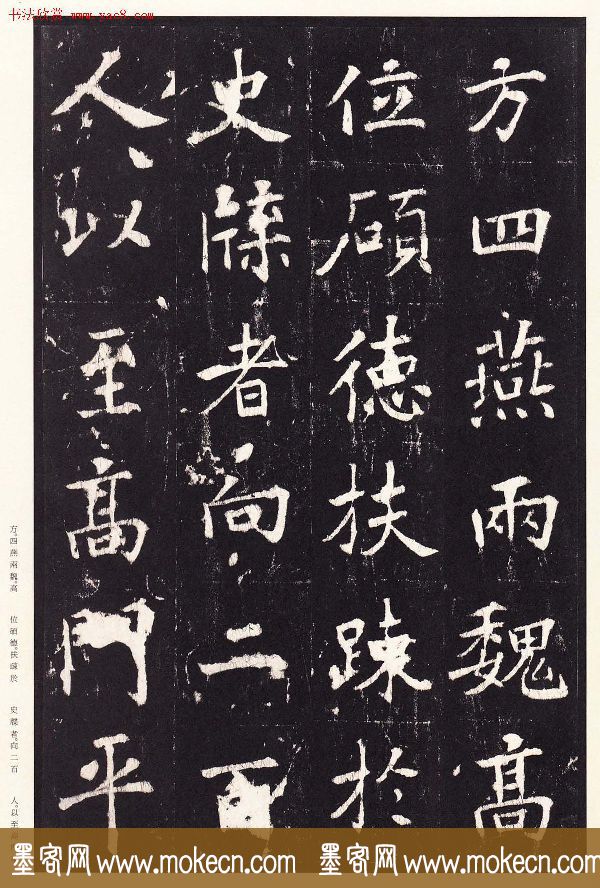 书法欣赏 www.yac8.com
方四燕兩魏高
位碩德扶踈於
史牒者向二百
人以至高門平
方。四燕兩魏。高
位碩德。扶疎於
史牒者。向二百
人。以至
墨客网 www.mokecn.com
墨客网 www.mokecn.com